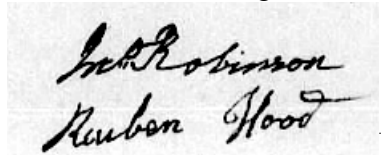 Jnº Robinson
Reuben Hood